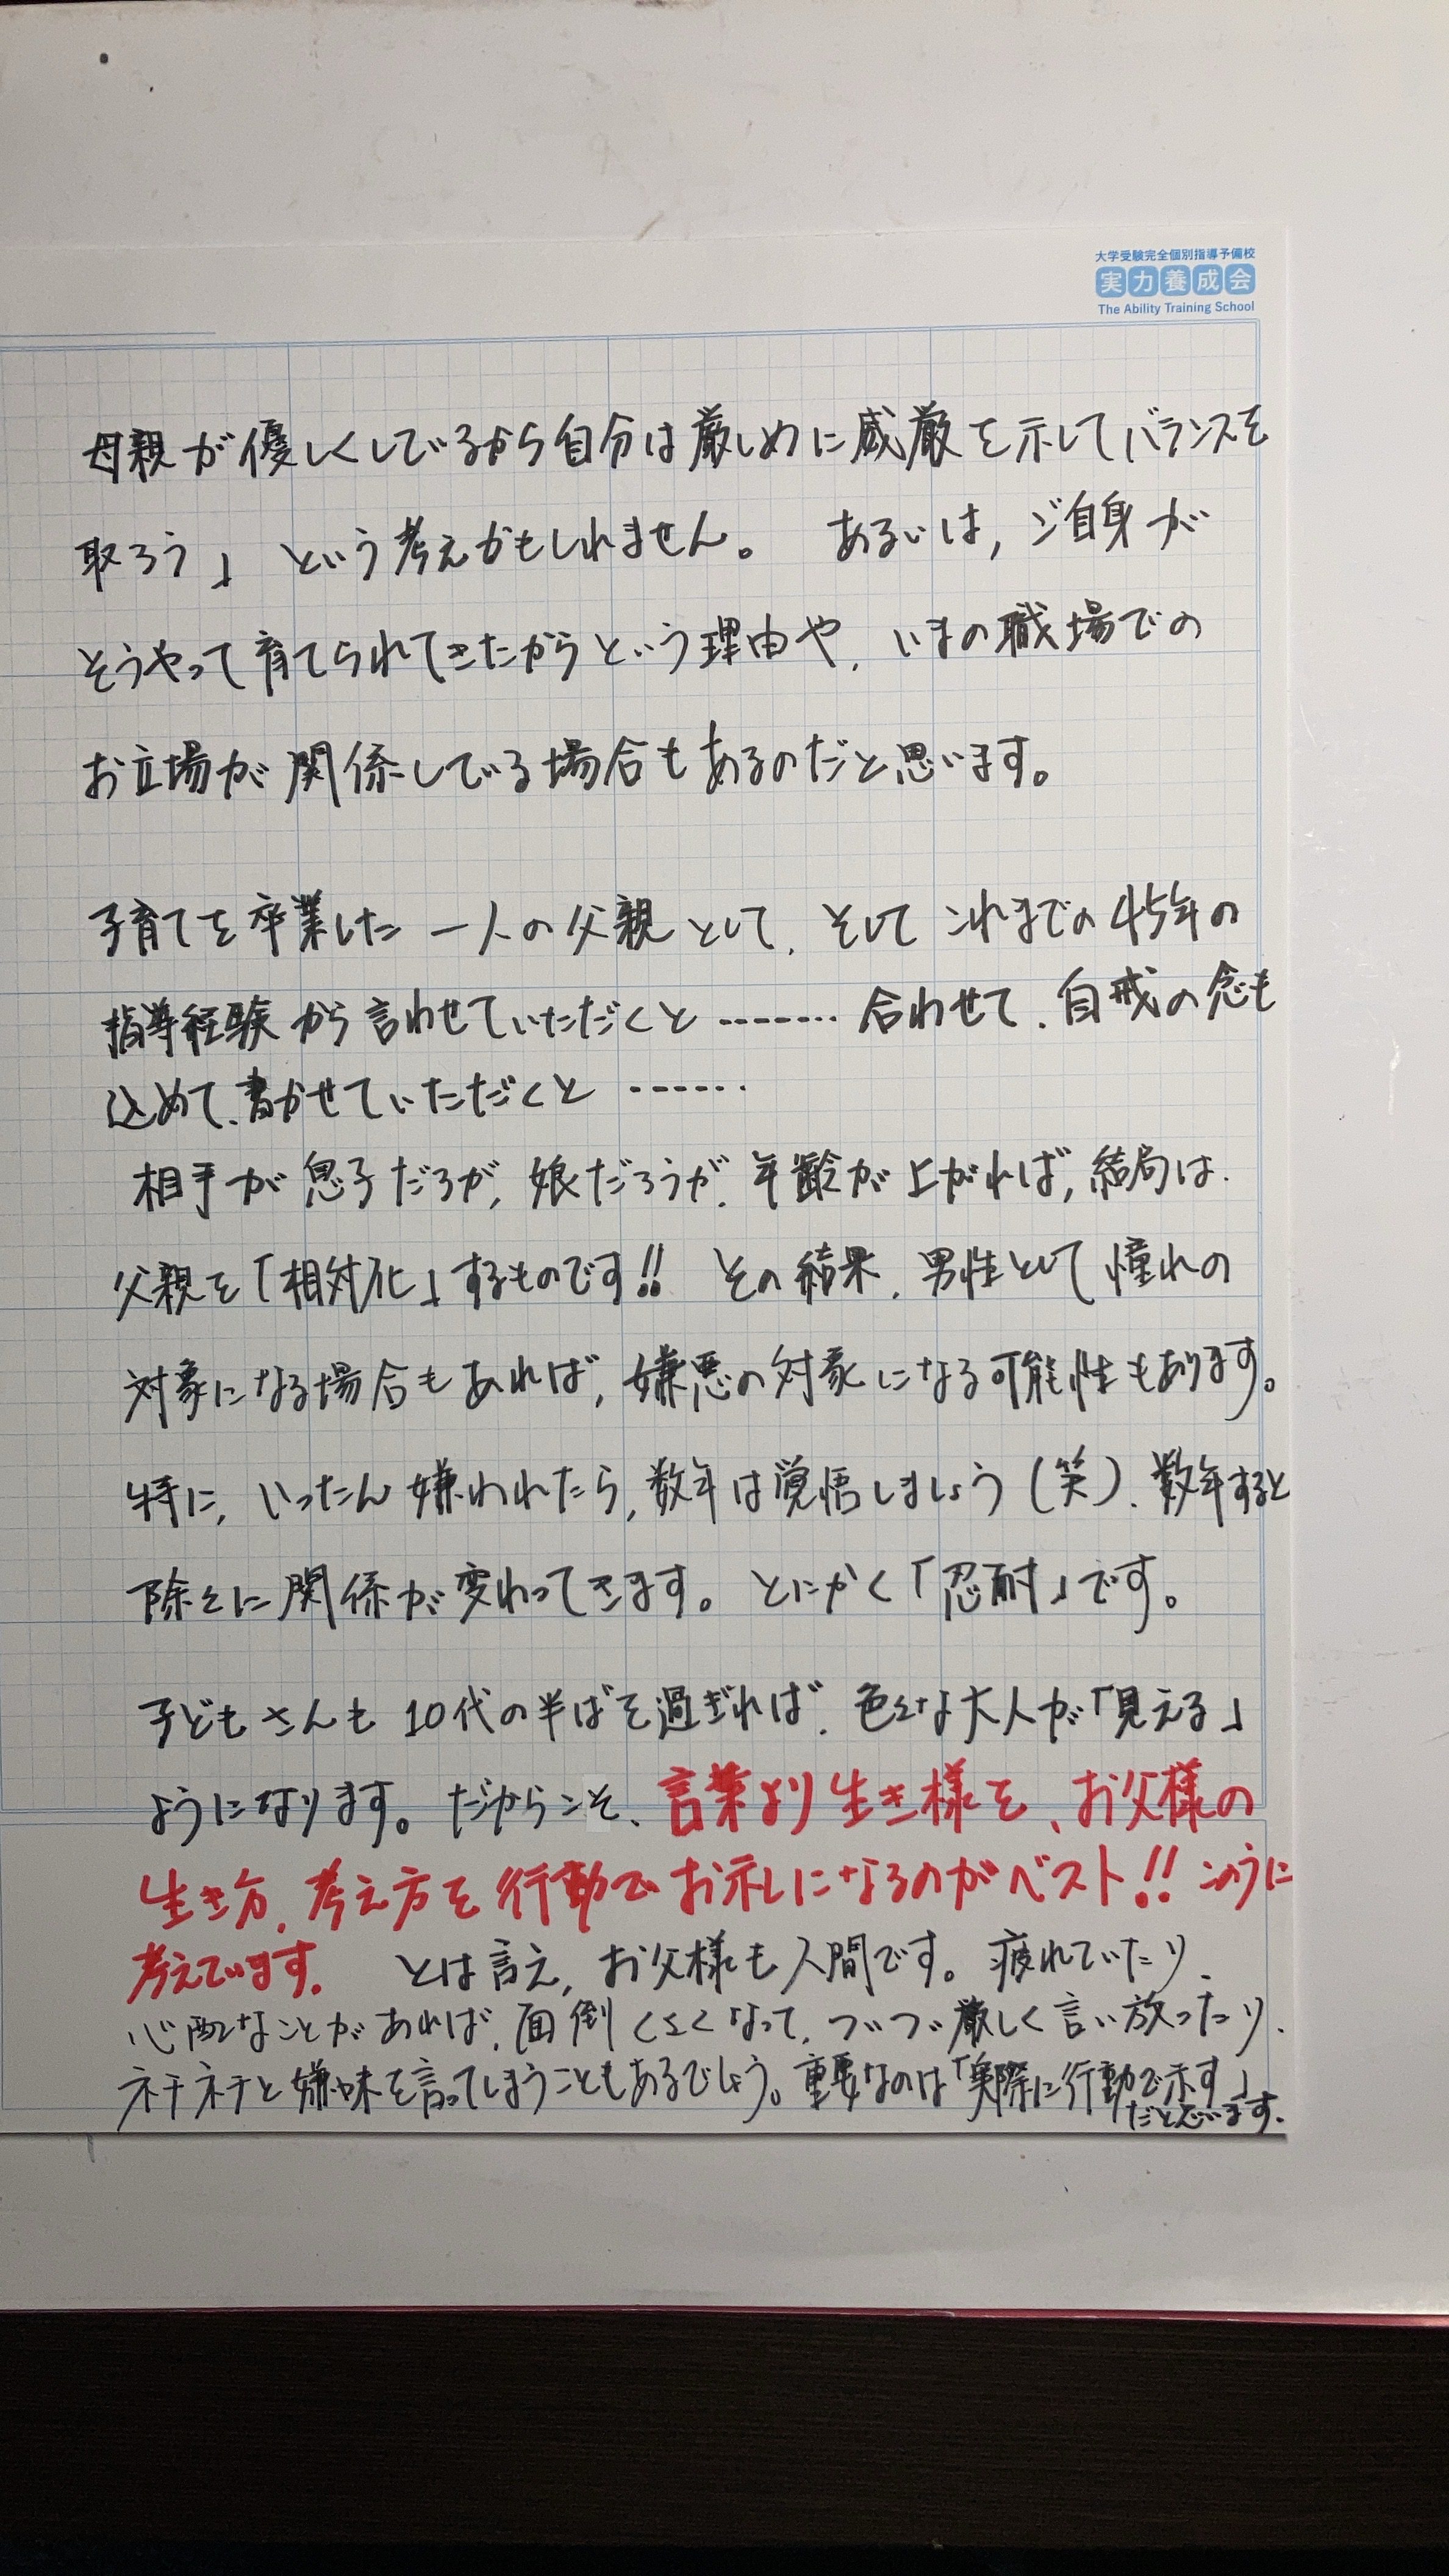 大学受験完全個別指導予備校
実力養成会
The Ability Training School
母親が優しくしているから自分は厳しめに威厳を示してバランスを
取ろう」 という考えかもしれません。 あるいは, ご自身が
そうやって育てられてきたからという理由や, いまの職場での
お立場が関係している場合もあるのだと思います。
子育てを卒業した一人の父親として, そしてこれまでの45年の
指導経験から言わせていただくと ……… 合わせて, 自戒の念も
込めて, 書かせていただくと ……
相手が息子だろが, 娘だろうが, 年齢が上がれば, 結局は,
父親を「相対化」するものです!! その結果, 男性として憧れの
対象になる場合もあれば, 嫌悪の対象になる可能性もあります。
特に, いったん嫌われたら, 数年は覚悟しましょう (笑), 数年すると
除々に関係が変わってきます。 とにかく「忍耐」です。
子どもさんも 10代の半ばを過ぎれば, 色々な大人が「見える」
ようになります。 だからこそ, 言葉より生き様を, お父様の
生き方, 考え方を行動でお示しになるのがベスト!! このうに
考えています。 とは言え, お父様も人間です。 疲れていたり,
心配なことがあれば, 面倒くさくなって, ついつい厳しく言い放ったり,
ネチネチと嫌味を言ってしまうこともあるでしょう。 重要なのは「実際に行動で示す」
だと思います.